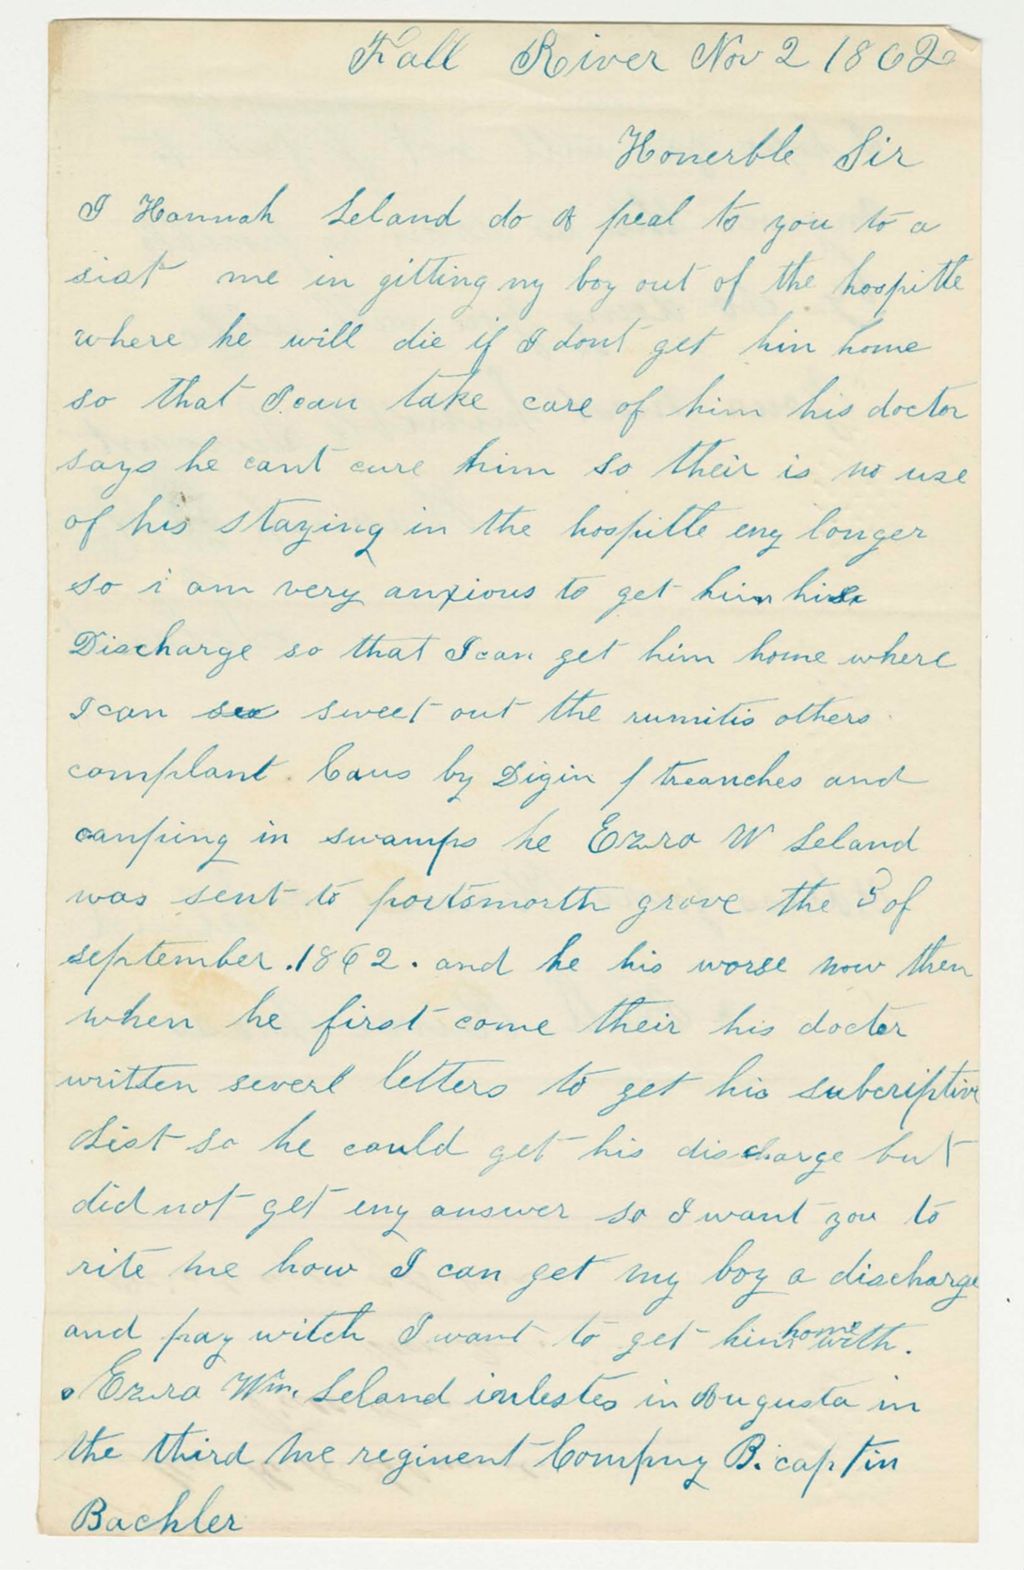 Fall River Nov 2 1862
Honerble Sir
I Hannah Leland do a peal to you to a
sist me in gitting my boy out of the hospitle
where he will die if I dont get him home
so that I can take care of him his doctor
says he cant cure him so their is no use
of his staying in the hospitle eny longer
so i am very anxious to get him his
Discharge so that I can get him home where
I can sweet out the rumitis others
complant. Caus by Digin treanches and
camping in swamps he Ezra W Leland
was sent to portsmorth grove the 3 of
september. 1862. and he his worse now then
when he first come their his docter
written severl letters to get his subcriptive
List so he could get his discharge but
did not get eny answer so I want you to
rite me how I can get my boy a discharge
and pay witch I want to get him home with.
Ezra Wm. Leland inlestes in Augusta in
the third me regiment Company B. captin
Bachler